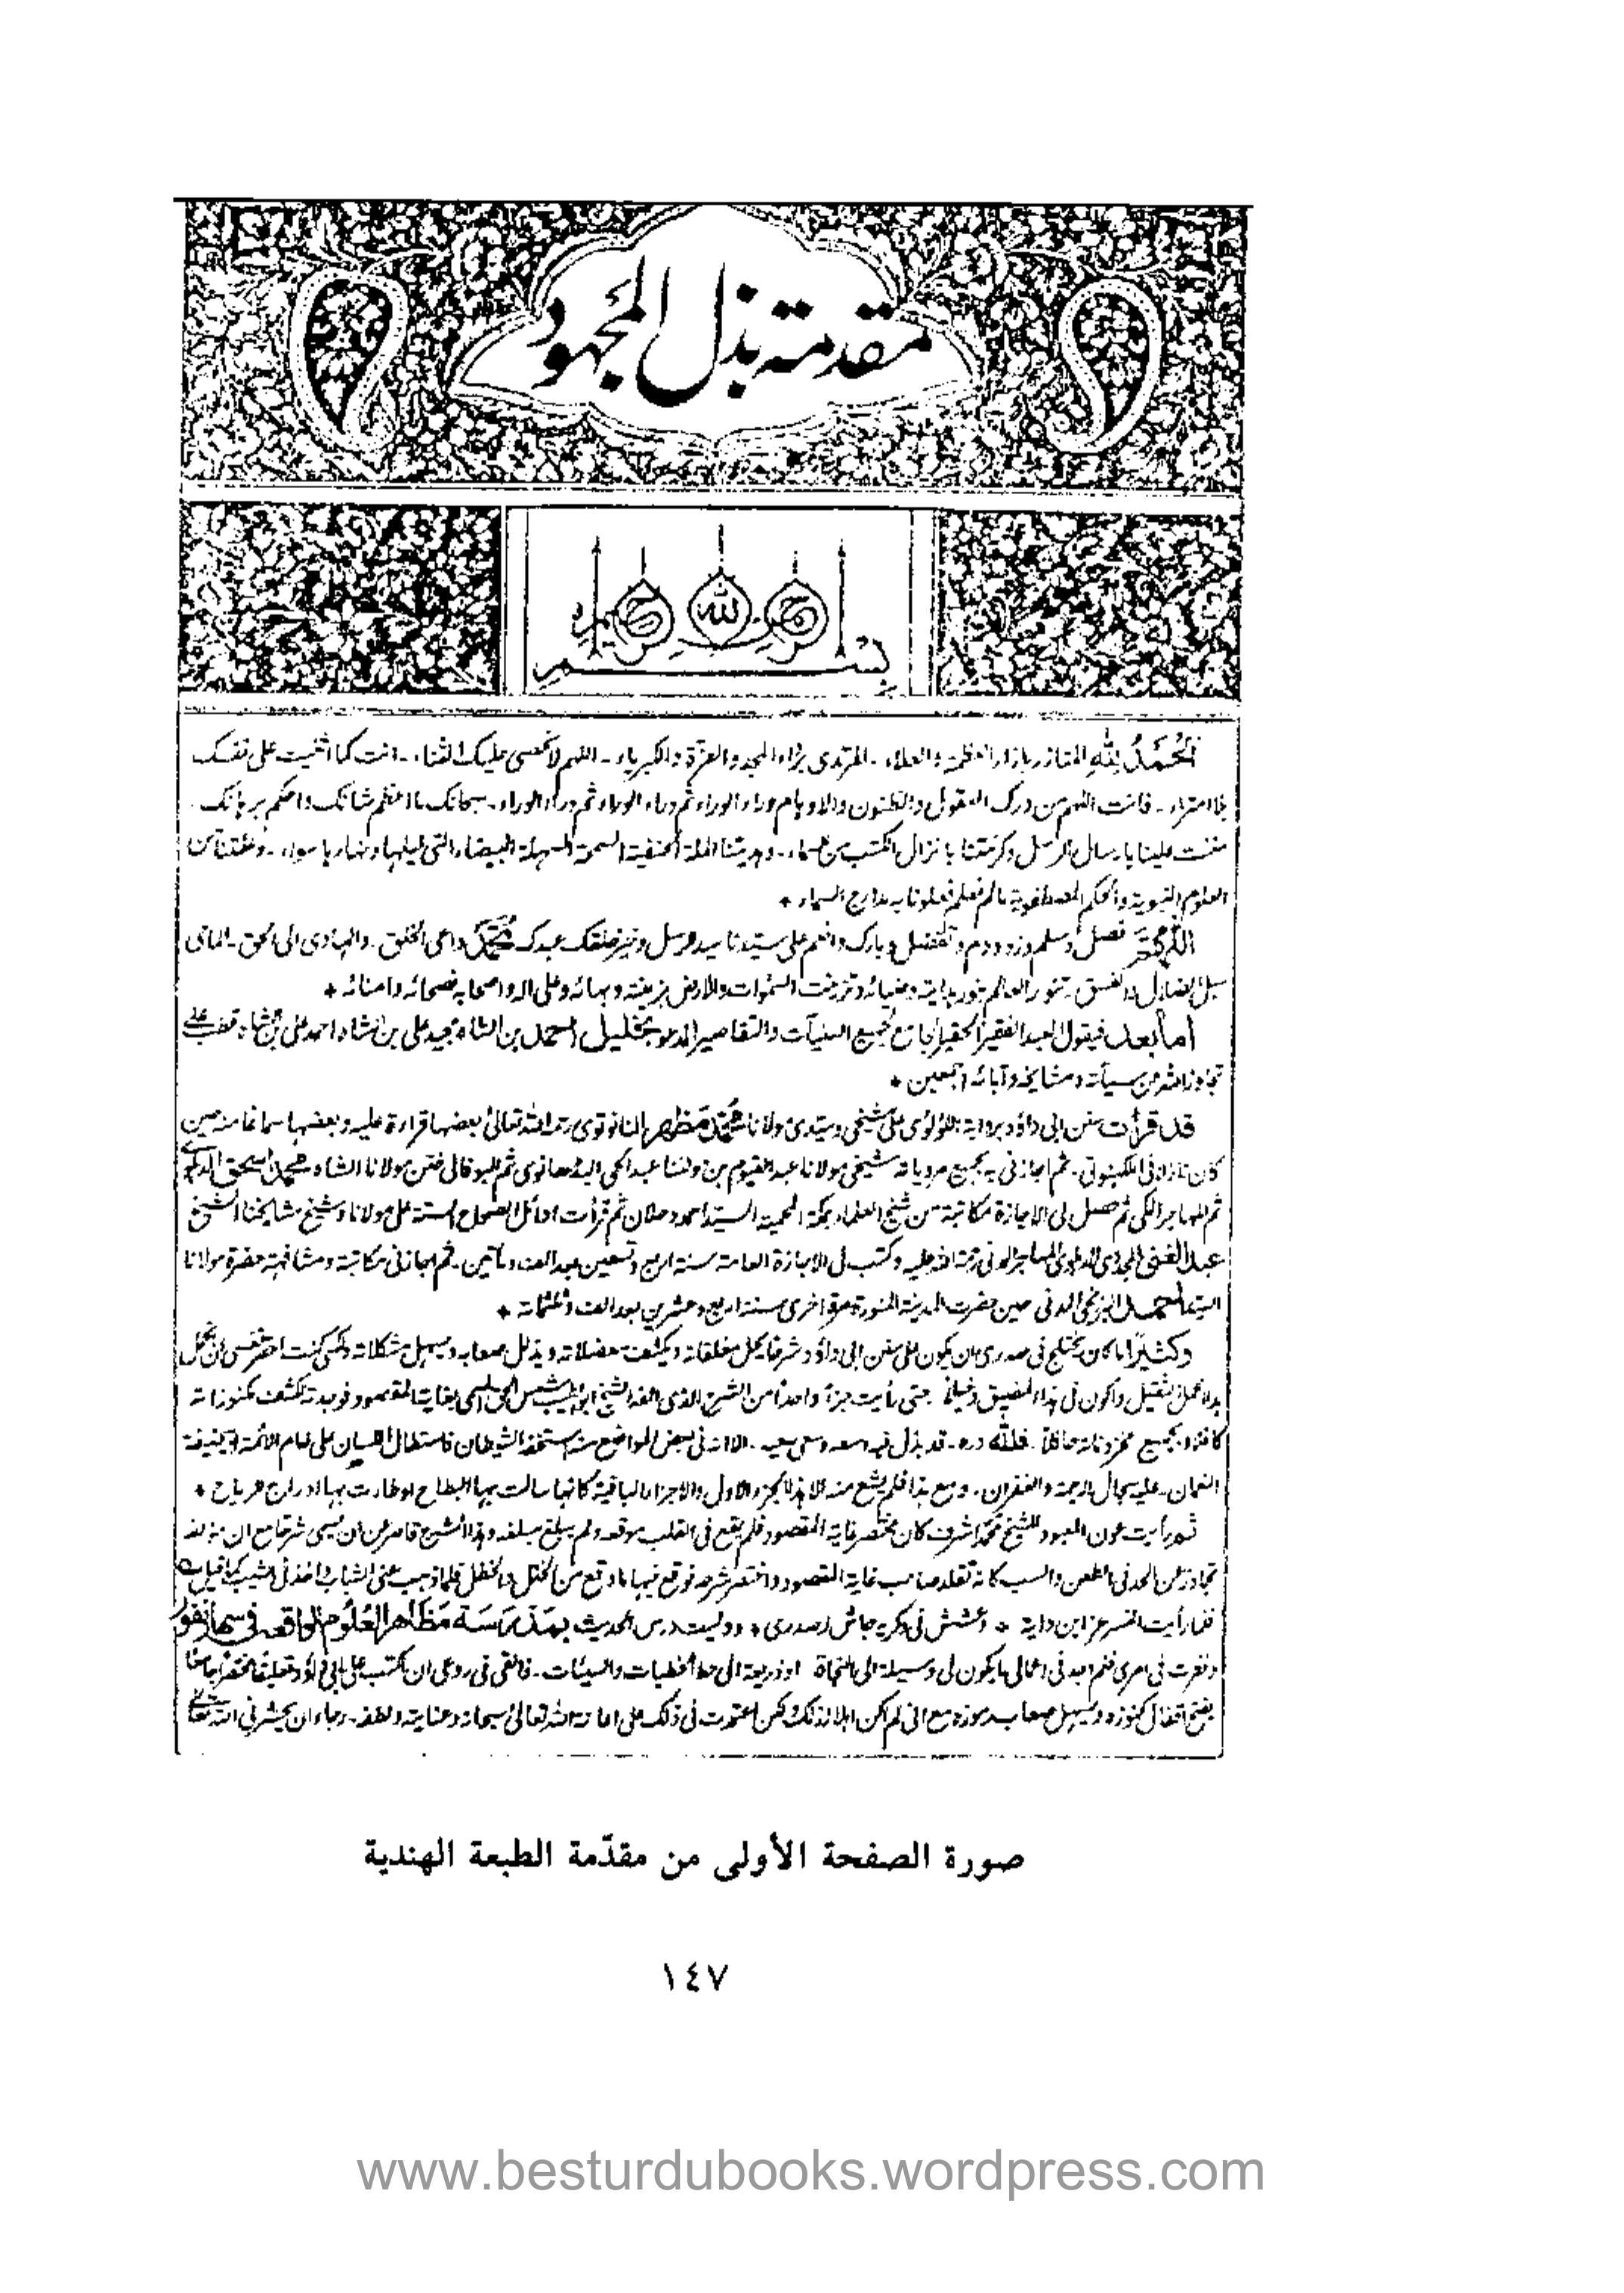 مقدمة بذل المجهود
بسم الله الرحمن الرحيم
الحمد لله المتازر بازار العظمة والعلاء ۔ المرتدى برداء المجد والعزة والكبرياء ۔ اللهم لا نحصى عليك الثناء ۔ انت كما اثنيت على نفسك
بلا امتراء ۔ فانت اللهم من درك العقول والظنون والاوهام وراء الوراء ثم وراء الوراء ثم وراء الوراء ۔ سبحانك ما اعظم شانك واحكم برهانك
مننت علينا بارسال الرسل وكرمتنا بانزال الكتب من السماء ۔ وهديتنا الملة الحنيفية السمحة السهلة البيضاء التى ليلها ونهارها سواء ۔ وعلمتنا من
العلوم النبوية والحكم المصطفوية ما لم نعلم فعلونا به مدارج السماء *
اللهم فصل وسلم وزد ودم وتفضل وبارك وانعم على سيدنا سيد مرسل وخير خلقك عبدك محمد داعى الخلق ۔ والهادى الى الحق ۔ الماحى
سبل الضلال والفسق ۔ تنور العالم بنور هدايته وضيائه وتزينت السموات والارض بزينته وبهائه وعلى اله واصحابه نصحائه وامنائه *
اما بعد فيقول العبد الفقير الحقير الجامع لجميع السيآت والتقاصير المدعو بخليل احمد بن الشاه مجيد على بن الشاه احمد على بن الشاه قطب على
تجاوز الله عن سيآته ومشايخه وآبائه اجمعين *
قد قرأت سنن ابى داود برواية اللؤلوى على شيخى وسيدى مولانا محمد مظهر النانوتوى رحمه الله تعالى بعضها قراءة عليه وبعضها سماعا منه حين
كان نازلا فى ثم اجازنى به بجميع مروياته شيخى مولانا عبد القيوم بن مولنا عبد الحى البدهانوى ثم البوفالى ختن مولانا الشاه محمد اسحق الدهلوى
ثم المهاجر المكى ثم حصل لى الاجازة مكاتبة من شيخ العلماء بمكة المحمية السيد احمد دحلان ثم قرأت اوائل الصحاح الستة على مولانا وشيخ مشايخنا الشيخ
عبد الغنى المجددى الدهلوى المهاجر المدنى رحمة الله عليه وكتب لى الاجازة العامة سنة اربع وتسعين بعد الف ومأتين ۔ ثم اجازنى مكاتبة ومشافهة حضرة مولانا
السيد احمد البرزنجى المدنى حين حضرت المدينة المنورة مرة اخرى سنة اربع وعشرين بعد الف وثلثمائة *
وكثيرا ما كان يختلج فى صدرى ان يكون على سنن ابى داود شرح يحل مغلقاته ويكشف معضلاته ويذلل صعابه ويسهل مشكلاته ولكنى كنت احقر نفسى ان تحمل
بهذا الحمل الثقيل واكون فى هذا المضيق دخيلا حتى رأيت جزءا واحدا من الشرح الذى الفه الشيخ ابو الطيب شمس الحق المسمى بغاية المقصود فوجدته لكشف مكنوزاته
كافلا وبجميع مخزوناته حافلا ۔ فلله دره ۔ قد بذل فيه وسعه وسعى سعيه ۔ الا انه فى بعض المواضع منه استحفه الشيطان فاستطال اللسان على امام الائمة ابى حنيفة
النعمان ۔ عليه سجال الرحمة والغفران ۔ ومع هذا فلم يشع منه الا هذا الجزء الاول والاجزاء الباقية كانها سالت بها البطاح او طارت بها ادراج الرياح *
ثم رأيت عون المعبود للشيخ محمد اشرف كان مختصر غاية المقصود فلم يقع فى القلب موقعه ولم يبلغ مبلغه وهذا الشرح قاصر عن ان يسمى شرحا مع ان مؤلفه
تجاوز عن الحد فى الطعن والسب كانه تقلد صاحب غاية المقصود واختصر شرحه فوقع فيها ما وقع من الخلل والخطل فلما ذهب عنى الشباب واخذنى الشيب كما قيل
فلما رأيت النسر عز ابن داية * وعشش فى وكريه جاش له صدرى * ووليت درس الحديث بمدرسة مظاهر العلوم الواقعة فى سهارنفور
ونظرت فى امرى فلم اجد فى اعمالى ما يكون لى وسيلة الى النجاة او ذريعة الى حط الخطيات والسيئات ۔ فالقى فى روعى ان اكتب على ابى داود تعليقا مختصرا جامعا
يفتح اقفال كنوزه ويسهل صعاب رموزه مع انى لم اكن اهلا لذلك ولكن اعتمدت فى ذلك على اعانة الله تعالى سبحانه وعنايته ولطفه ۔ رجاء ان يحشرنى الله تعالى
صورة الصفحة الأولى من مقدّمة الطبعة الهندية
١٤٧
www.besturdubooks.wordpress.com